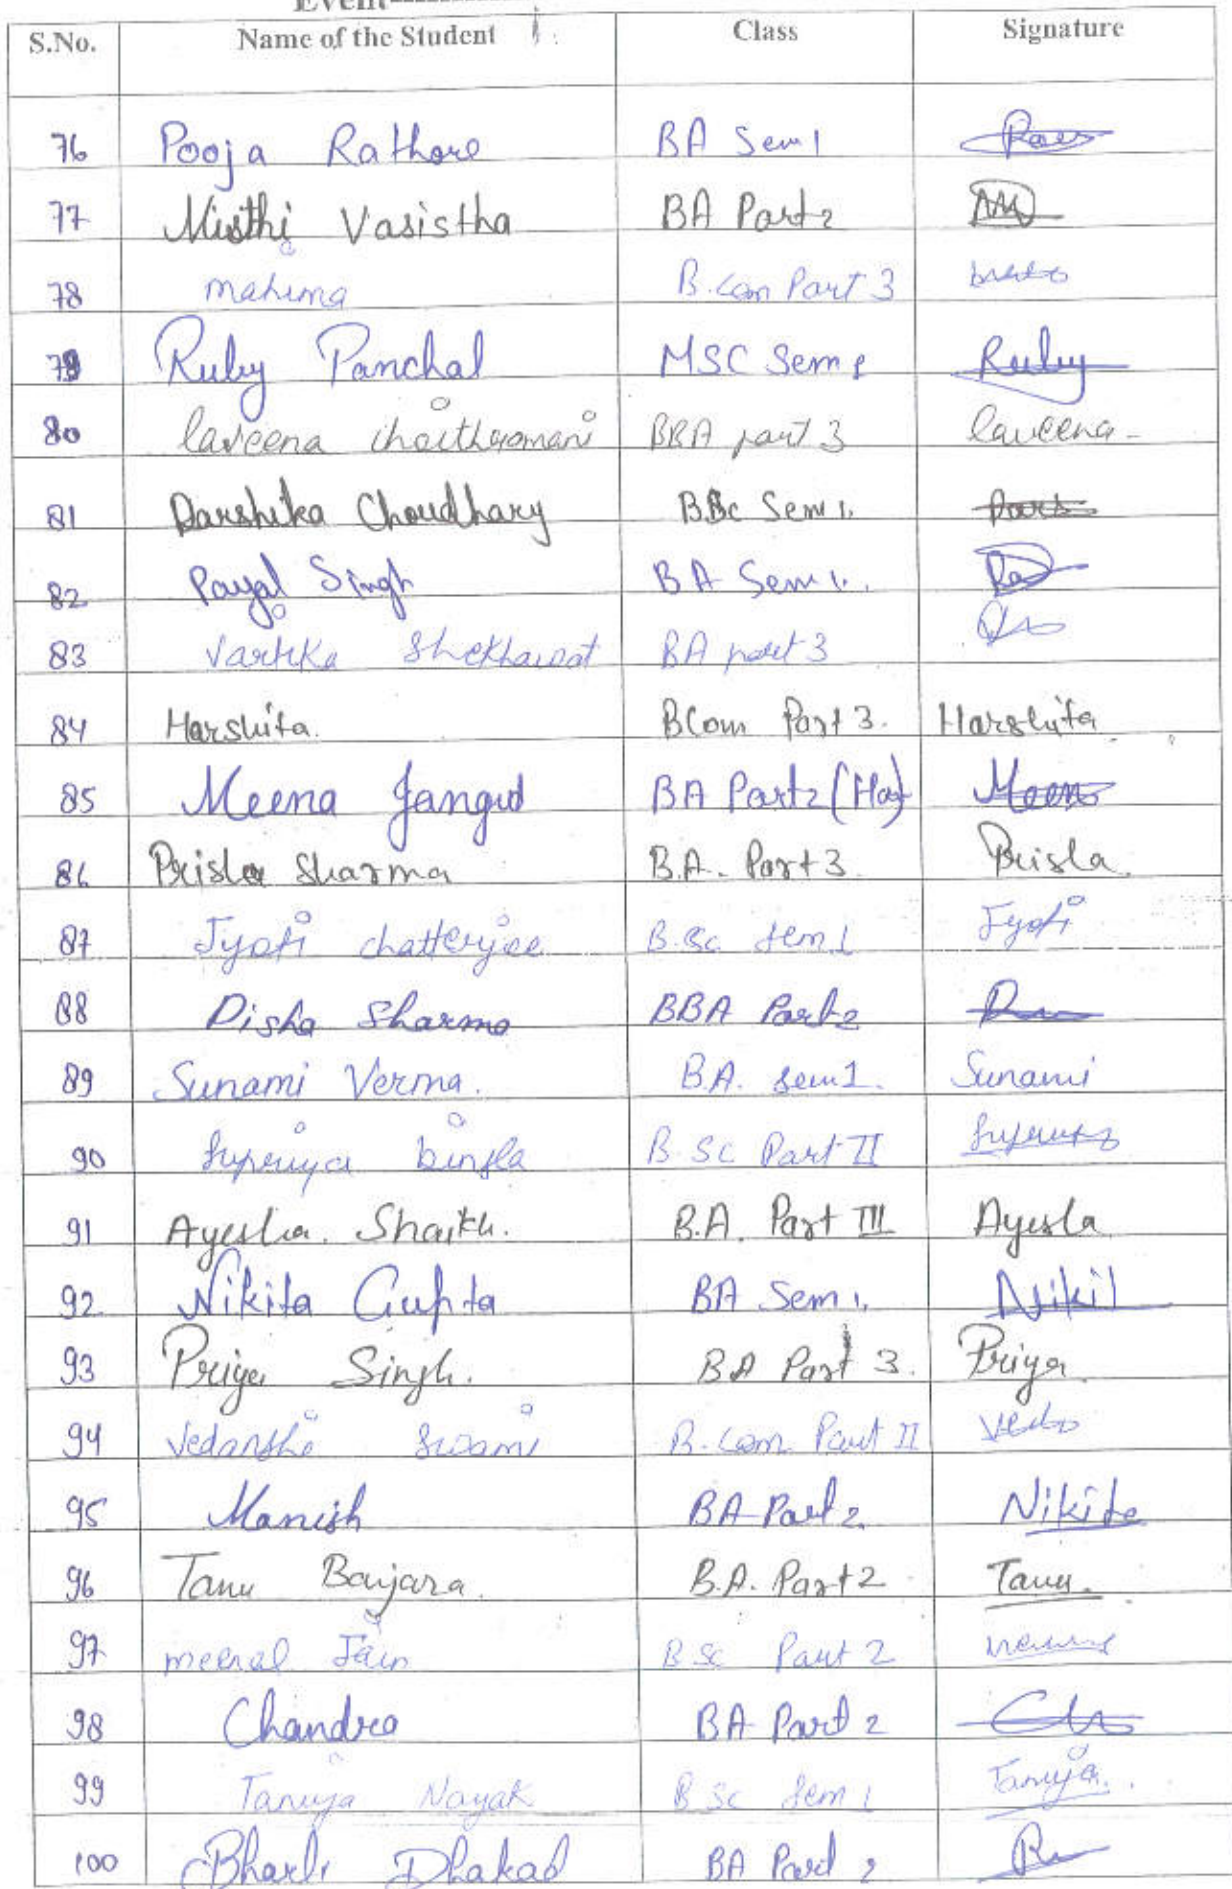 Event
S.No. Name of the Student Class Signature
76 Pooja Rathore BA Sem 1
77 Misthi Vasistha BA Part 2
78 mahima B.com Part 3
79 Ruby Panchal MSC Sem Ruby
80 laveena BBA part 3 laveena
81 Darshika Choudhary BSc Sem 1.
82 Payal Singh BA Sem 1.
83 Vartika Shekhawat BA part 3
84 Harshita. BCom Part 3. Harshita
85 Meena Jangid BA Part 2 Meena
86 Prisla Sharma B.A. Part 3 Prisla
87 Jyoti chatterjee B.Sc sem 1 Jyoti
88 Disha Sharma BBA Part 2
89 Sunami Verma. B.A. sem 1. Sunami
90 Supriya B.Sc Part II
91 Ayesha. Shaikh. B.A. Part III Ayesha
92 Nikita Gupta BA Sem 1.
93 Priya Singh. BA Part 3. Priya
94 Vedanshi Swami B.com Part II
95 Manish BA Part 2 Nikita
96 Tanu Banjara. B.A. Part 2 Tanu.
97 meenal Jain B Sc Part 2
98 Chandra BA Part 2
99 Tanuja Nayak B Sc Sem 1 Tanuja.
100 Dhakad BA Part 2